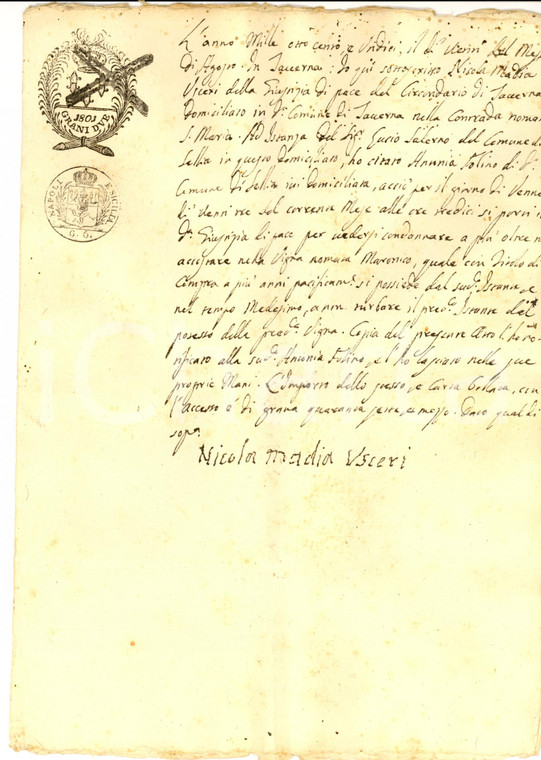 1801
GRANI DVE
NAPOLI E SICILIA
G. G.
L'anno Mille otto cento e Undici, il dì Venti del Mese
Di Agosto in Taverna: Io qui sottoscritto Nicola Madia
Usceri della Giustizia di pace del Circondario di Taverna
Domiciliato in d.o Comune di Taverna nella Contrada nomata
S. Maria. Ad Istanza del Sig.r Lucio Salerno del Comune di
Sellia in questo domiciliato, ho citato Antonia Folino di d.o
Comune di Sellia ivi domiciliata, acciò per il giorno di Vener
dì venti tre del corrente Mese alle ore tredici si porti in
d.a Giustizia di pace per vedersi condonnare a più oltre non
accostare nella Vigna nomata Maronico, quale con titolo di
Compra a più anni pacificam.e si possiede dal sud.o Istante, e
nel tempo Medesimo, a non turbare il pred.o Istante dal
possesso della pred.a Vigna. Copia del presente Atto l'ho no
tificato alla sud.a Antonia Folino, e l'ho lasciato nelle sue
proprie Mani. L'Importo dello stesso, e Carta bollata, con
l'accesso è di grana quaranta sette, e mezzo. Dato qual di
sopra
Nicola Madia Usceri